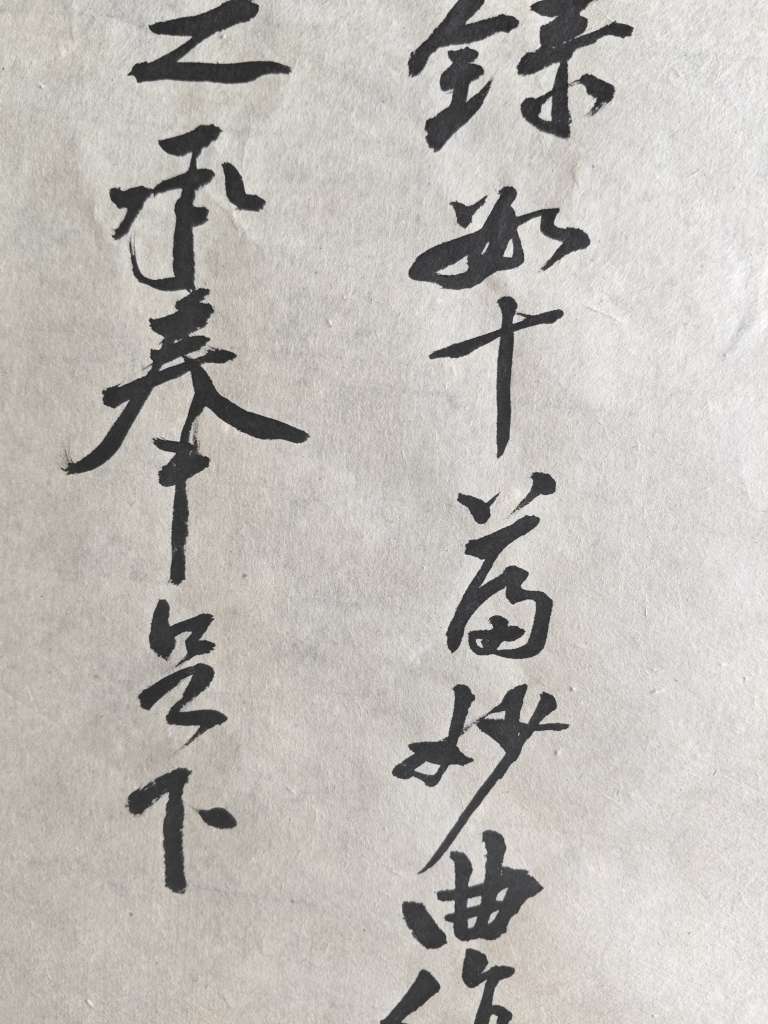 錄數十篇妙曲作
之承奉足下